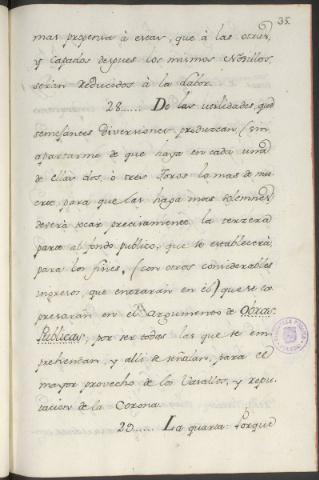 35
mas propensa à estas, que à las otras,
y Capados despues los mismos Novillos,
serán Reducidos à la Labor.
28..... De las utilidades, que
semejantes Diversiones produzcan, (sin
apartarme de que haya en cada una
de ellas dos, ò tres Toros lo mas de mu
para que las haga mas solemnes
deverá tocar precisamente la terzera
parte al fondo publico, que se establecerá
para los fines, (con otros considerables
ingresos, que entrarán en él) que se ex
presarán en el Argumento de Obras
Publicas, por ser todas las que se em
prehendan, y alli se señalan, para el
mayor provecho de los Vasallos, y repu
tacion de la Corona.
29..... La quarta: Porque